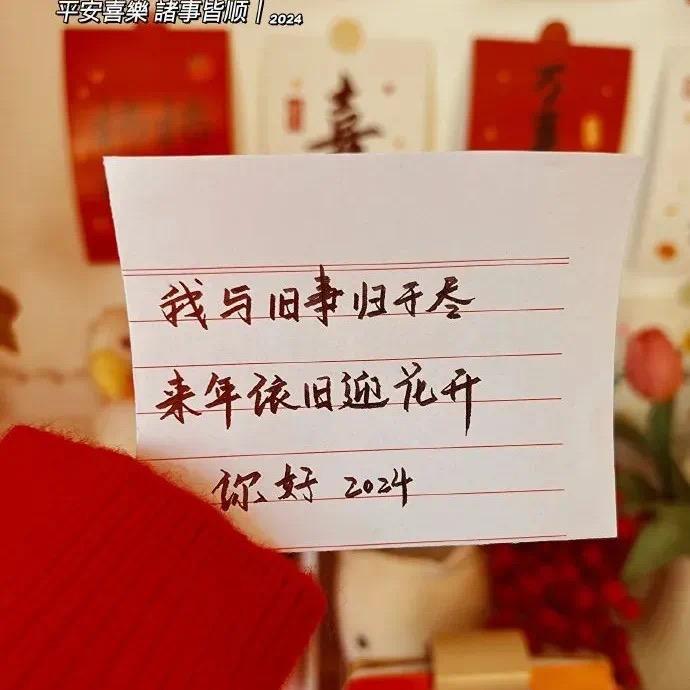 平安喜樂 諸事皆顺 | 2024
喜
我与旧事归于尽
来年依旧迎花开
你好 2024